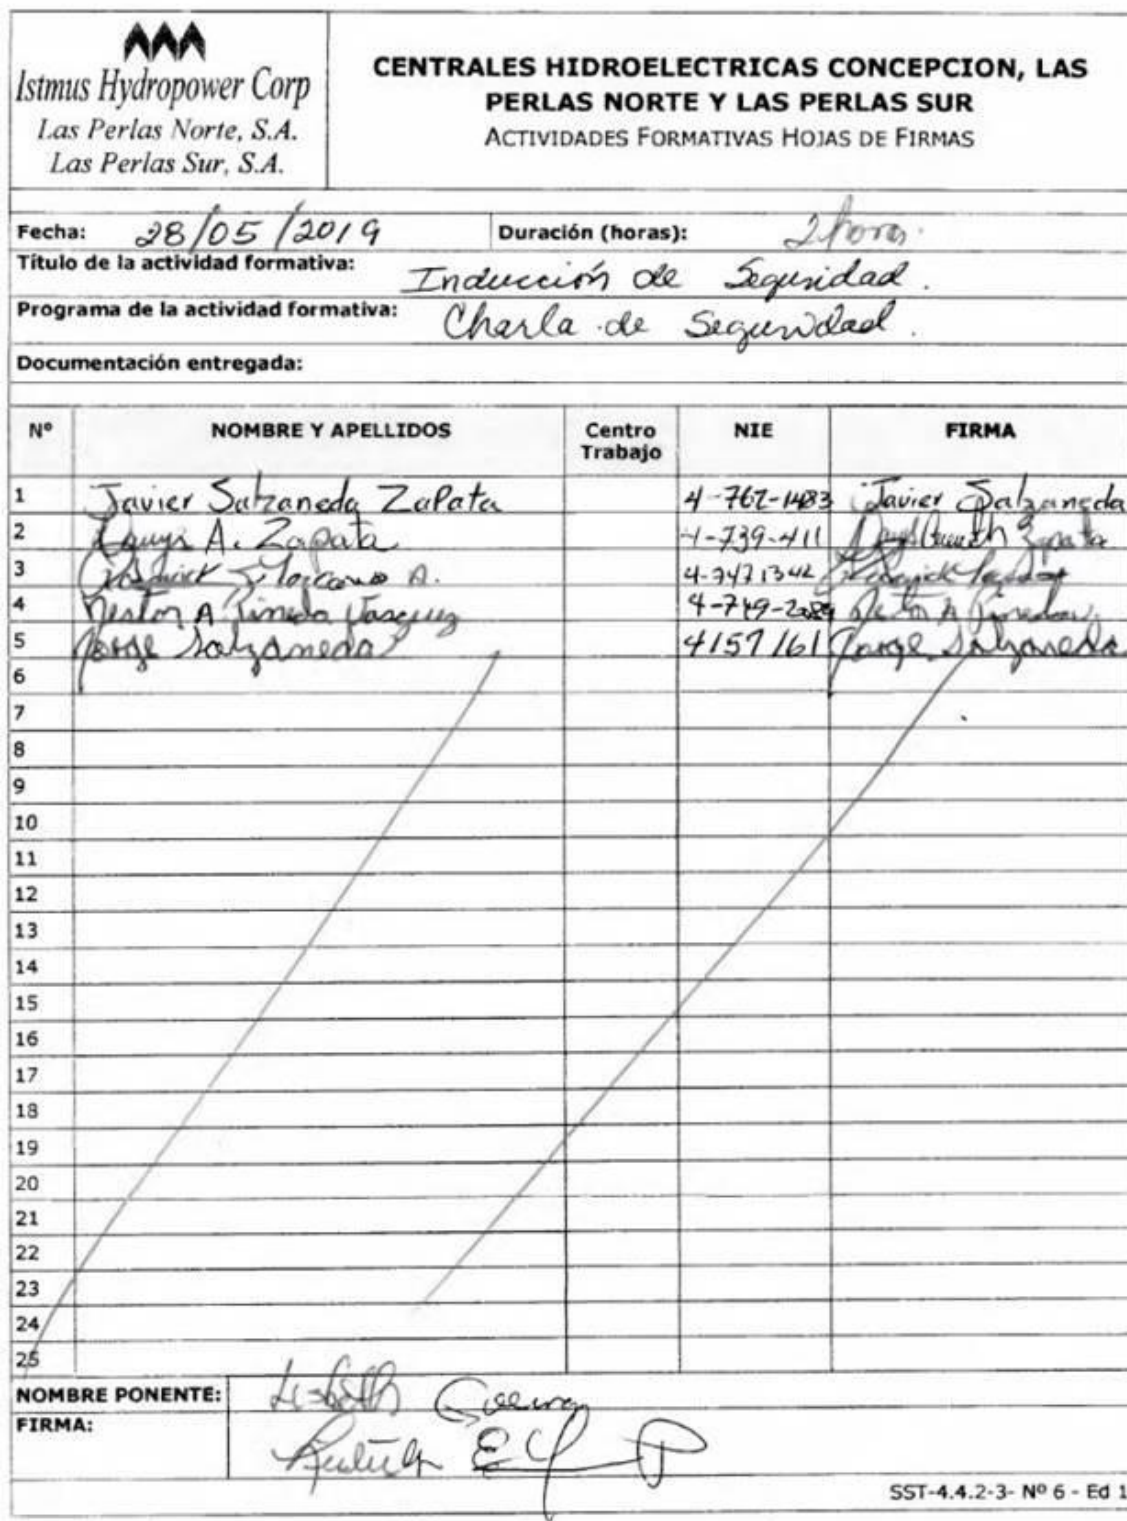 Istmus Hydropower Corp
Las Perlas Norte, S.A.
Las Perlas Sur, S.A.
CENTRALES HIDROELECTRICAS CONCEPCION, LAS
PERLAS NORTE Y LAS PERLAS SUR
ACTIVIDADES FORMATIVAS HOJAS DE FIRMAS
Fecha: 28/05/2019 Duración (horas): 2 horas.
Título de la actividad formativa: Inducción de Seguridad.
Programa de la actividad formativa: Charla de Seguridad.
Documentación entregada:
Nº NOMBRE Y APELLIDOS Centro Trabajo NIE FIRMA
1 Javier Salzaneda Zapata 4-762-1483 Javier Salzaneda
2 A. Zapata 4-739-411 Zapata
3 A. 4-747 1342
4 Nestor A Pineda Vasquez 4-749-2084 Nestor A Pineda
5 Jorge Salzaneda 4157 161 Jorge Salzaneda
6
7
8
9
10
11
12
13
14
15
16
17
18
19
20
21
22
23
24
25
NOMBRE PONENTE: Lisbeth
FIRMA:
SST-4.4.2-3- Nº 6 - Ed 1